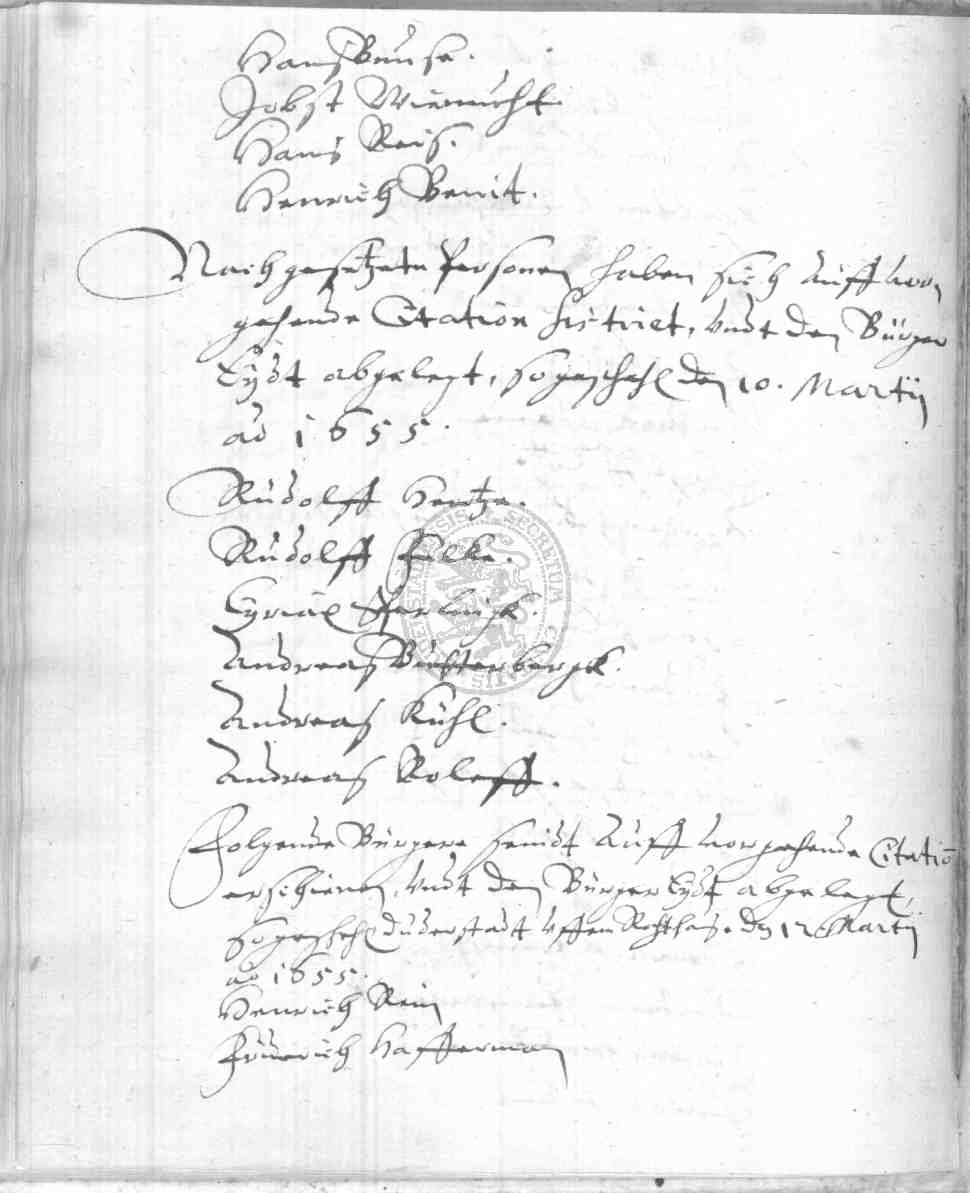 Hans Bense.
Jobst Wienricht.
Hans Reis.
Henrich Benit.
Nachgesetzete Personen haben sich auff vor
gehende Citation sistriet, undt den Bürger
Eydt abgelegt, so geschehn den 10. Martÿ
ao 1655.
Rudolff Hentze.
Rudolff Felke.
Cyriax
Andreas
Andreas Kühl.
Andreas Roleff.
Folgende Bürgere seindt auff vorgehende Citatiō
erschienen, undt den Bürger Eydt abgelegt,
so geschehn Duderstadt uffem Rahthaus. den 12 Martÿ
ao 1655.
Henrich Rein
Friderich Hafferman
SECRETUM